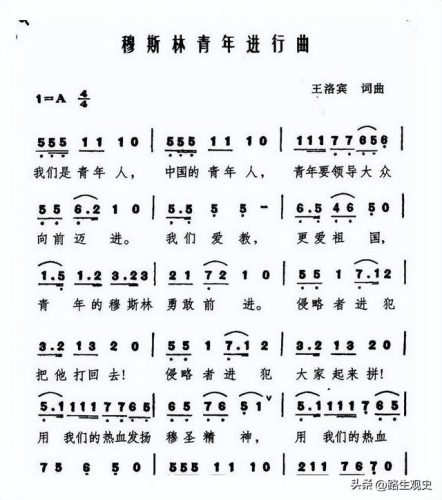 穆斯林青年进行曲
1=A 4/4
王洛宾 词曲
555 11 10 | 555 11 10 | 111 77 656 |
我们是青年人, 中国的青年人, 青年要领导大众
55 6.2 10 | 5.5 5 5 - | 6.5 46 50 |
向前迈进。 我们爱教, 更爱祖国,
1.5 1.2 3.23 | 21 72 10 | 55 1 7.12 |
青年的穆斯林勇敢前进。 侵略者进犯
3.2 13 20 | 55 1 7.1 2 | 3.2 13 20 |
把他打回去! 侵略者进犯 大家起来拼!
5.111 7765 | 66 76 51 ∨ | 5.111 7765 |
用我们的热血发扬 穆圣精神, 用我们的热血
75 6 50 | 5 5 10 | 211 7670 |
头条 @路生观史